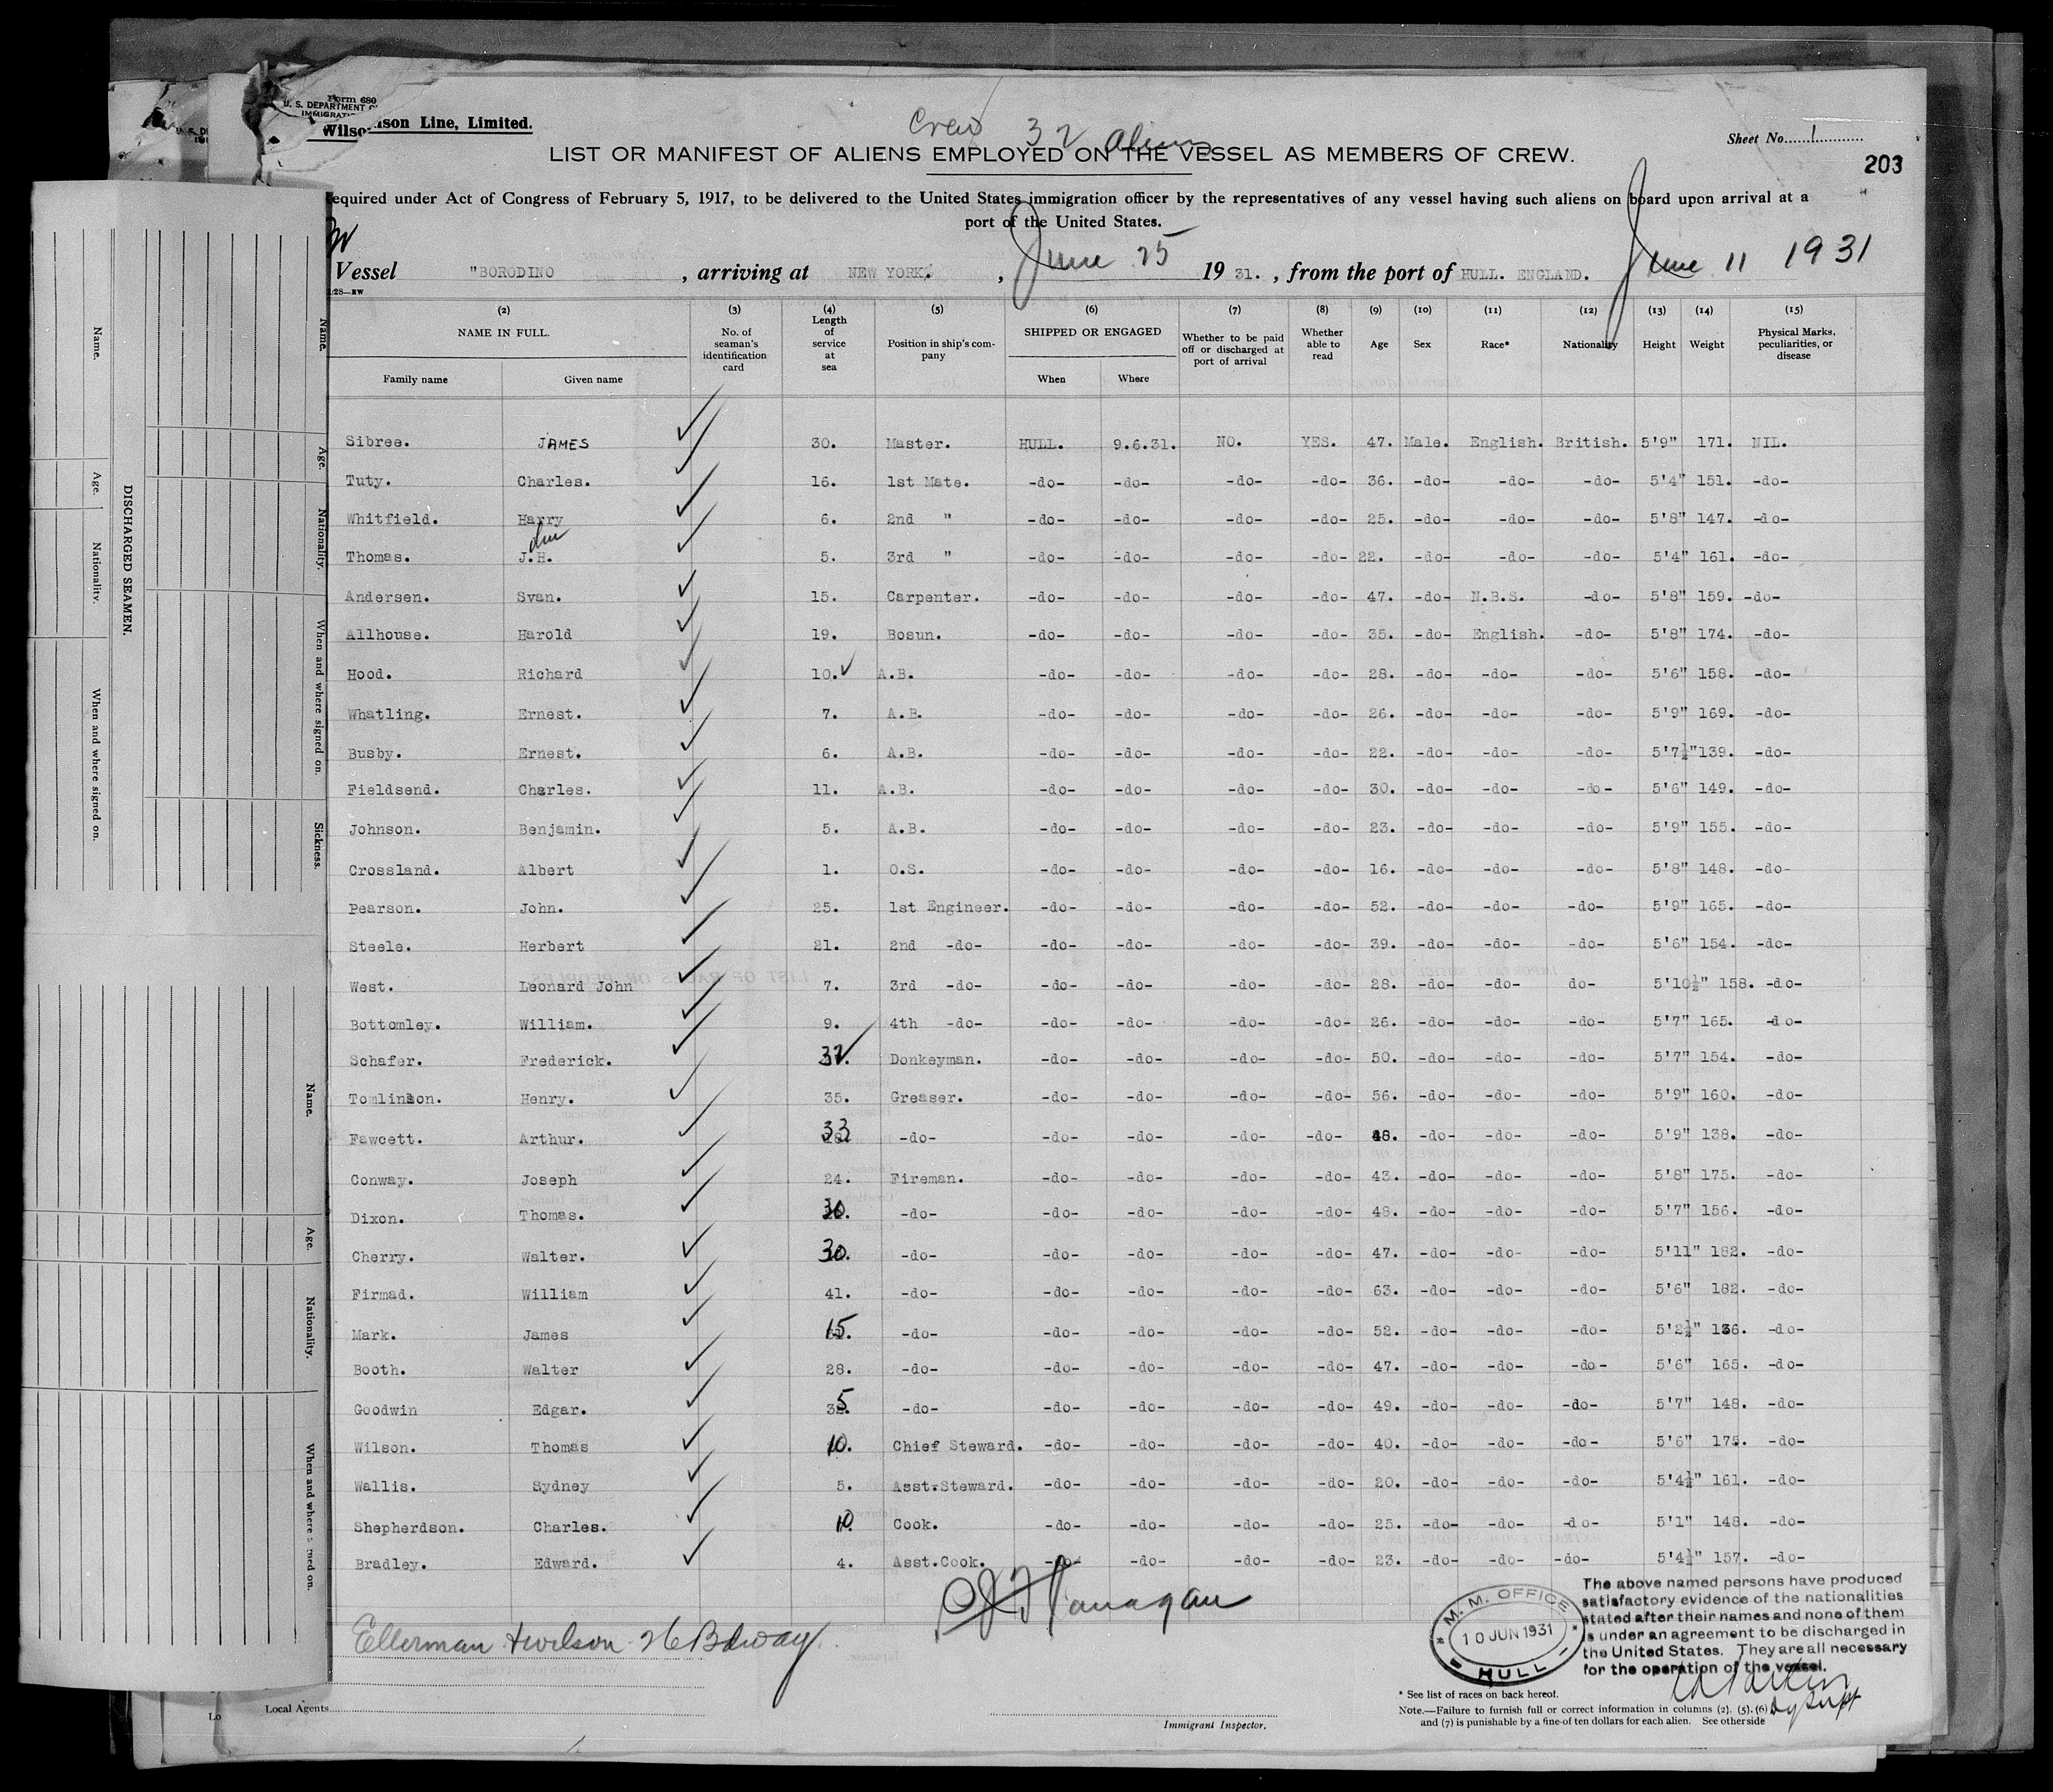 Form 680
U. S. DEPARTMENT O
IMMIGRATI
Wilso
nson Line, Limited.
Crew 32 aliens
Sheet No. 1
LIST OR MANIFEST OF ALIENS EMPLOYED ON THE VESSEL AS MEMBERS OF CREW.
203
equired under Act of Congress of February 5, 1917, to be delivered to the United States immigration officer by the representatives of any vessel having such aliens on board upon arrival at a
port of the United States.
Vessel "BORODINO , arriving at NEW YORK. , June 25 19 31. , from the port of HULL. ENGLAND. June 11 1931
(2) (3) (4) (5) (6) (7) (8) (9) (10) (11) (12) (13) (14) (15)
NAME IN FULL. No. of seaman's identification card Length of service at sea Position in ship's company SHIPPED OR ENGAGED Whether to be paid off or discharged at port of arrival Whether able to read Age Sex Race* Nationality Height Weight Physical Marks, peculiarities, or disease
Family name Given name When Where
Sibree. JAMES 30. Master. HULL. 9.6.31. NO. YES. 47. Male. English. British. 5'9" 171. NIL.
Tuty. Charles. 16. 1st Mate. -do- -do- -do- -do- 36. -do- -do- -do- 5'4" 151. -do-
Whitfield. Harry 6. 2nd " -do- -do- -do- -do- 25. -do- -do- -do- 5'8" 147. -do-
Thomas. J.H. 5. 3rd " -do- -do- -do- -do- 22. -do- -do- -do- 5'4" 161. -do-
Andersen. Svan. 15. Carpenter. -do- -do- -do- -do- 47. -do- N.B.S. -do- 5'8" 159. -do-
Allhouse. Harold 19. Bosun. -do- -do- -do- -do- 35. -do- English. -do- 5'8" 174. -do-
Hood. Richard 10. A.B. -do- -do- -do- -do- 28. -do- -do- -do- 5'6" 158. -do-
Whatling. Ernest. 7. A.B. -do- -do- -do- -do- 26. -do- -do- -do- 5'9" 169. -do-
Busby. Ernest. 6. A.B. -do- -do- -do- -do- 22. -do- -do- -do- 5'7½" 139. -do-
Fieldsend. Charles. 11. A.B. -do- -do- -do- -do- 30. -do- -do- -do- 5'6" 149. -do-
Johnson. Benjamin. 5. A.B. -do- -do- -do- -do- 23. -do- -do- -do- 5'9" 155. -do-
Crossland. Albert 1. O.S. -do- -do- -do- -do- 16. -do- -do- -do- 5'8" 148. -do-
Pearson. John. 25. 1st Engineer. -do- -do- -do- -do- 52. -do- -do- -do- 5'9" 165. -do-
Steele. Herbert 21. 2nd -do- -do- -do- -do- -do- 39. -do- -do- -do- 5'6" 154. -do-
West. Leonard John 7. 3rd -do- -do- -do- -do- -do- 28. -do- -do- do- 5'10½" 158. -do-
Bottomley. William. 9. 4th -do- -do- -do- -do- -do- 26. -do- -do- -do- 5'7" 165. -do-
Schafer. Frederick. 32. Donkeyman. -do- -do- -do- -do- 50. -do- -do- -do- 5'7" 154. -do-
Tomlinson. Henry. 35. Greaser. -do- -do- -do- -do- 56. -do- -do- -do- 5'9" 160. -do-
Fawcett. Arthur. 33 -do- -do- -do- -do- -do- 48. -do- -do- -do- 5'9" 138. -do-
Conway. Joseph 24. Fireman. -do- -do- -do- -do- 43. -do- -do- -do- 5'8" 175. -do-
Dixon. Thomas. 30. -do- -do- -do- -do- -do- 48. -do- -do- -do- 5'7" 156. -do-
Cherry. Walter. 30. -do- -do- -do- -do- -do- 47. -do- -do- -do- 5'11" 182. -do-
Firmad. William 41. -do- -do- -do- -do- -do- 63. -do- -do- -do- 5'6" 182. -do-
Mark. James 15. -do- -do- -do- -do- -do- 52. -do- -do- -do- 5'2½" 136. -do-
Booth. Walter 28. -do- -do- -do- -do- -do- 47. -do- -do- -do- 5'6" 165. -do-
Goodwin Edgar. 5 -do- -do- -do- -do- -do- 49. -do- -do- -do- 5'7" 148. -do-
Wilson. Thomas 10. Chief Steward. -do- -do- -do- -do- 40. -do- -do- -do- 5'6" 175. -do-
Wallis. Sydney 5. Asst.Steward. -do- -do- -do- -do- 20. -do- -do- -do- 5'4½" 161. -do-
Shepherdson. Charles. 10. Cook. -do- -do- -do- -do- 25. -do- -do- -do- 5'1" 148. -do-
Bradley. Edward. 4. Asst.Cook. -do- -do- -do- -do- 23. -do- -do- -do- 5'4½" 157. -do-
Ellerman & Wilson 26 Bdway
Local Agents
Immigrant Inspector.
M. M. OFFICE
10 JUN 1931
HULL
The above named persons have produced
satisfactory evidence of the nationalities
stated after their names and none of them
is under an agreement to be discharged in
the United States. They are all necessary
for the operation of the vessel.
* See list of races on back hereof.
Note.—Failure to furnish full or correct information in columns (2). (5). (6)
and (7) is punishable by a fine of ten dollars for each alien. See other side
DISCHARGED SEAMEN.
Name. Age. Nationality. When and where signed on.
Name. Age. Nationality. When and where signed on. Sickness.
Name. Age. Nationality. When and where s ned on.